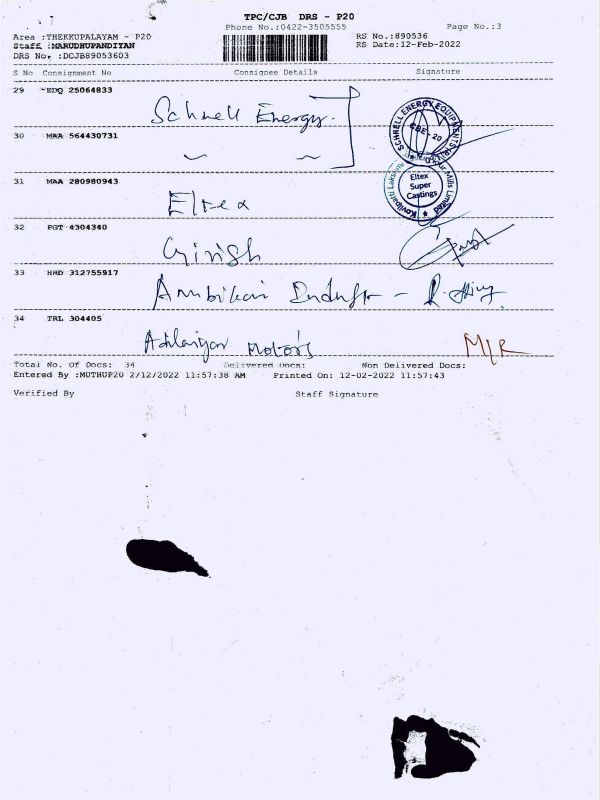 TPC/CJB DRS - P20
Phone No.:0422-3505555
Page No.:3
Area :THEKKUPALAYAM - P20
RS No.:890536
Staff :MARUDHUPANDIYAN
RS Date:12-Feb-2022
DRS No. :DCJB89053603
S No Consignment No Consignee Details Signature
29 EDQ 25064833
Schnell Energy.
SCHNELL ENERGY EQUIPMENTS
CBE - 20
30 MAA 564430731
31 MAA 280980943
Eltex
Eltex
Super
Castings
32 PGT 4304340
Girish
33 HRD 312755917
Ambikai
34 TRL 304405
Motors
M/R
Total No. Of Docs: 34 Delivered Docs: Non Delivered Docs:
Entered By :MUTHUP20 2/12/2022 11:57:38 AM Printed On: 12-02-2022 11:57:43
Verified By Staff Signature